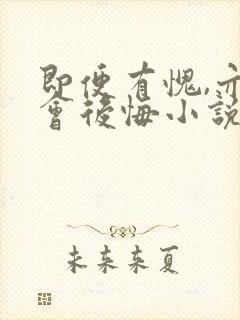 即便有愧,亦
會後悔小說
未来来夏